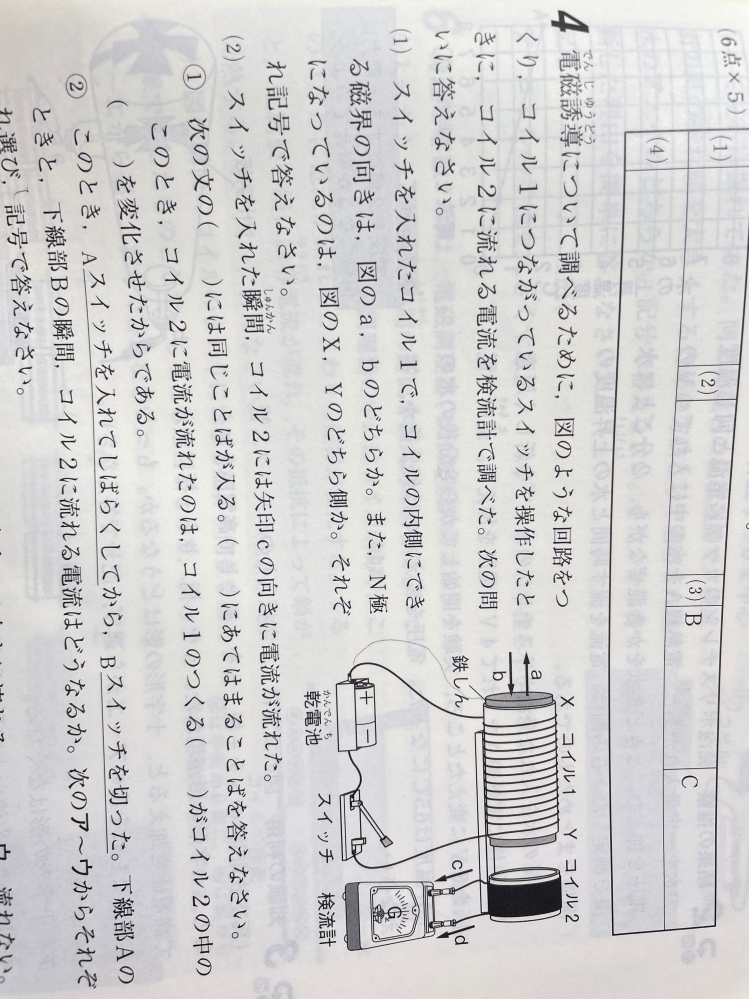 (6点×5)
(1)
(2)
(3) B
C
(4)
4 電磁誘導について調べるために，図のような回路をつ
でん じ ゆうどう
くり，コイル1につながっているスイッチを操作したと
きに，コイル2に流れる電流を検流計で調べた。次の問
いに答えなさい。
(1) スイッチを入れたコイル1で，コイルの内側にでき
る磁界の向きは，図のa，bのどちらか。また，N極
になっているのは，図のX，Yのどちら側か。それぞ
れ記号で答えなさい。
(2) スイッチを入れた瞬間，コイル2には矢印cの向きに電流が流れた。
しゅんかん
① 次の文の(　　)には同じことばが入る。(　　)にあてはまることばを答えなさい。
このとき，コイル2に電流が流れたのは，コイル1のつくる(　　)がコイル2の中の
(　　)を変化させたからである。
② このとき，Aスイッチを入れてしばらくしてから，Bスイッチを切った。下線部Aの
ときと，下線部Bの瞬間，コイル2に流れる電流はどうなるか。次のア〜ウからそれぞ
れ選び，記号で答えなさい。
ウ 流れない。
a
b
X コイル1 Y コイル2
鉄しん
+ −
かんでん ち
乾電池
スイッチ
c
d
G
検流計